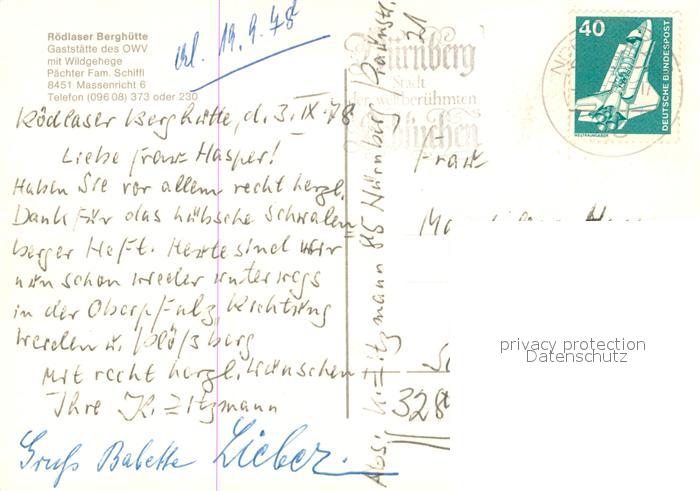 Rödlaser Berghütte
Gaststätte des OWV
mit Wildgehege
Pächter Fam. Schiffl
8451 Massenricht 6
Telefon (096 08) 373 oder 230
erl. 19.9.78
Rödlaser Berghütte, d. 3. IX. 78
Liebe Frau Hasper!
Haben Sie vor allem recht herzl.
Dank für das hübsche Schwalen
berger Heft. Heute sind wir
nun schon wieder unterwegs
in der Oberpfalz, Richtung
Weiden u. Plößberg
Mit recht herzl. Wünschen
Ihre K. Zitzmann
Gruß Babette Lieber.
Abs. K. Zitzmann 85 Nürnberg
21
Nürnberg
Stadt
der weltberühmten
Lebkuchen
40
DEUTSCHE BUNDESPOST
WELTRAUMLABOR
Frau
328
privacy protection
Datenschutz